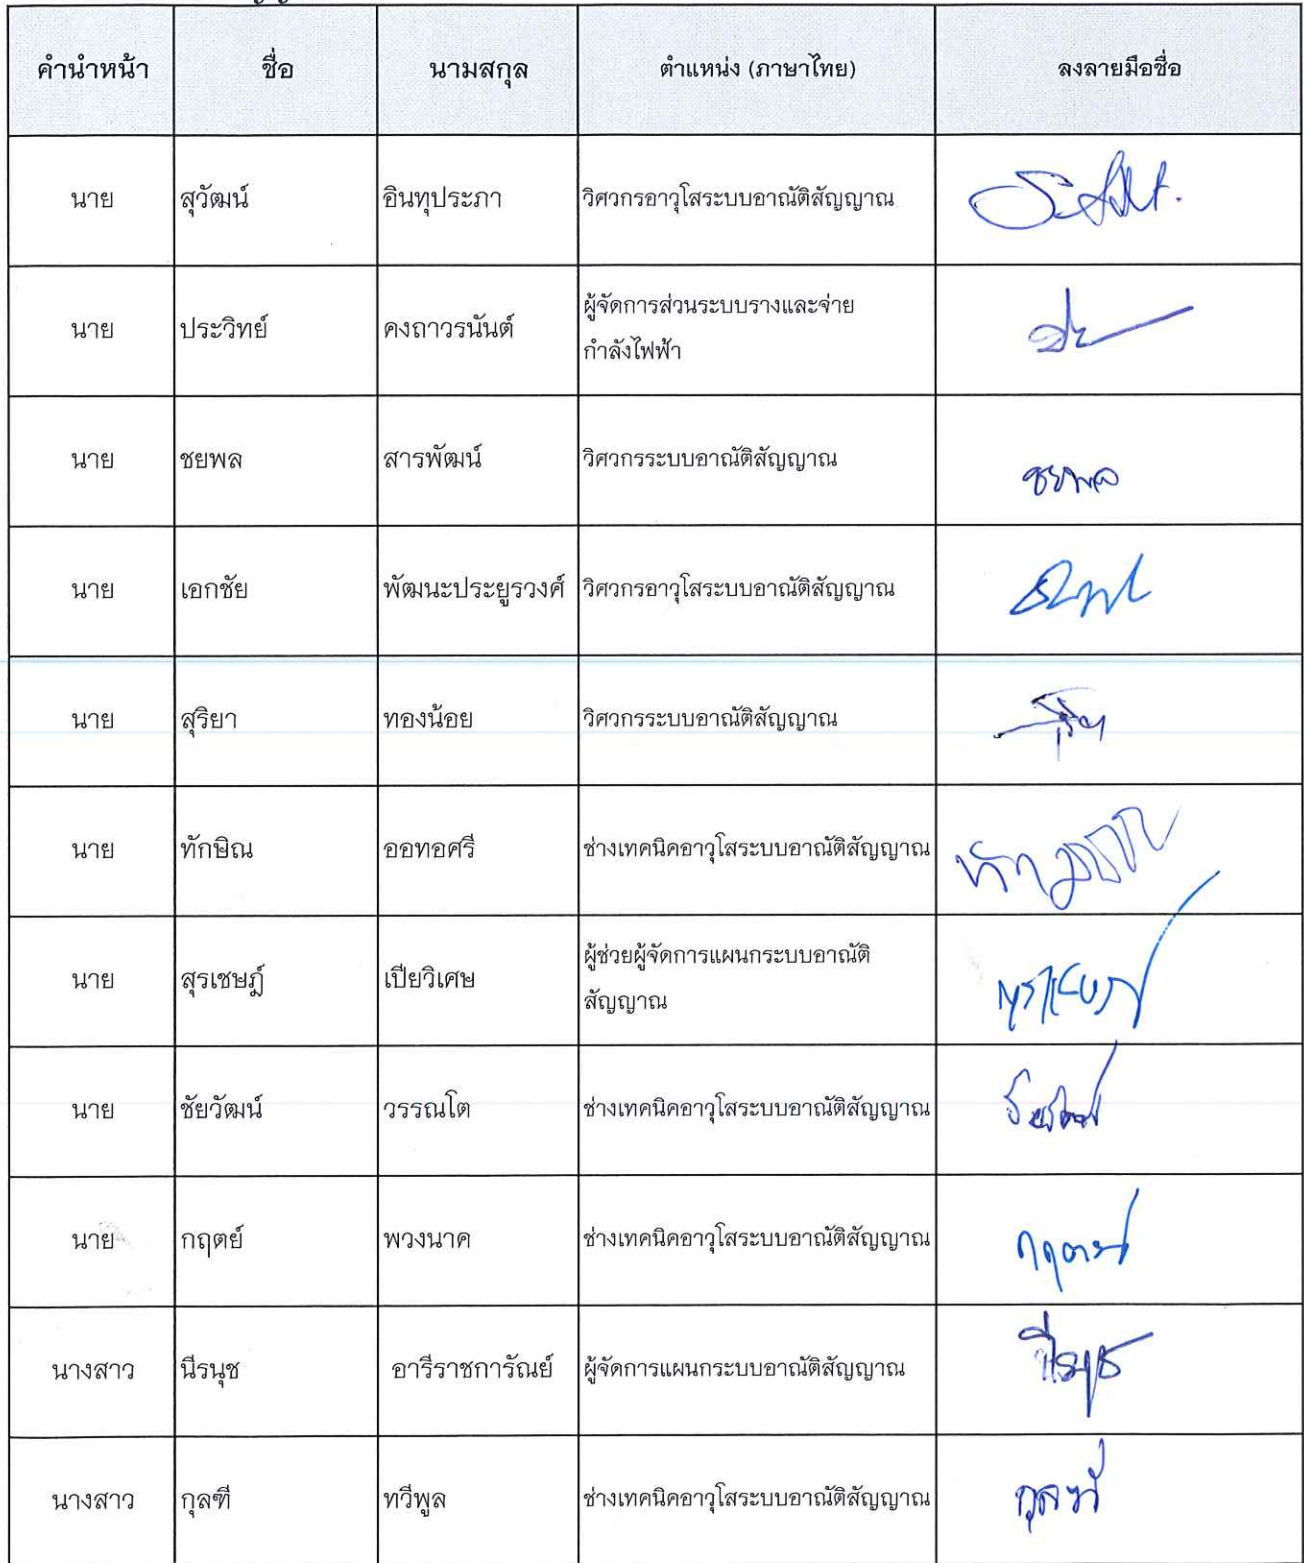 คำนำหน้า ชื่อ นามสกุล ตำแหน่ง (ภาษาไทย) ลงลายมือชื่อ
นาย สุวัฒน์ อินทุประภา วิศวกรอาวุโสระบบอาณัติสัญญาณ
นาย ประวิทย์ คงถาวรนันต์ ผู้จัดการส่วนระบบรางและจ่าย
กำลังไฟฟ้า
นาย ชยพล สารพัฒน์ วิศวกรระบบอาณัติสัญญาณ ชยพล
นาย เอกชัย พัฒนะประยูรวงศ์ วิศวกรอาวุโสระบบอาณัติสัญญาณ
นาย สุริยา ทองน้อย วิศวกรระบบอาณัติสัญญาณ
นาย ทักษิณ ออทอศรี ช่างเทคนิคอาวุโสระบบอาณัติสัญญาณ
นาย สุรเชษฎ์ เปียวิเศษ ผู้ช่วยผู้จัดการแผนกระบบอาณัติ
สัญญาณ
นาย ชัยวัฒน์ วรรณโต ช่างเทคนิคอาวุโสระบบอาณัติสัญญาณ ชัยวัฒน์
นาย กฤตย์ พวงนาค ช่างเทคนิคอาวุโสระบบอาณัติสัญญาณ กฤตย์
นางสาว นีรนุช อารีราชการัณย์ ผู้จัดการแผนกระบบอาณัติสัญญาณ นีรนุช
นางสาว กุลฑี ทวีพูล ช่างเทคนิคอาวุโสระบบอาณัติสัญญาณ กุลฑี